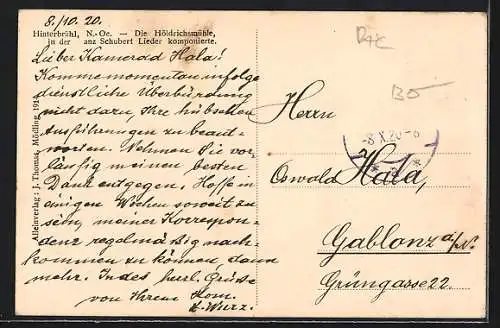 8./10. 20.
Hinterbrühl, N.-Oe. — Die Höldrichsmühle,
in der    anz Schubert Lieder komponierte.
Lieber Kamerad Hala!
Komme momentan infolge
dienstliche Überbürdung
nicht dazu, Ihre hübschen
Ausführungen zu beant-
worten. Nehmen Sie vor-
läufig meinen besten
Dank entgegen, Hoffe in
einigen Wochen soweit zu
sein, meiner Korrespon-
denz regelmäßig nach-
kommen zu können, dann
mehr. Indes herzl. Grüße
von Ihrem Kom.
Wurz.
Alleinverlag: J. Thomas, Mödling 191
Herrn
-8.X.20-6
Oswald Hala,
Gablonz a/N.
Grüngasse 22.